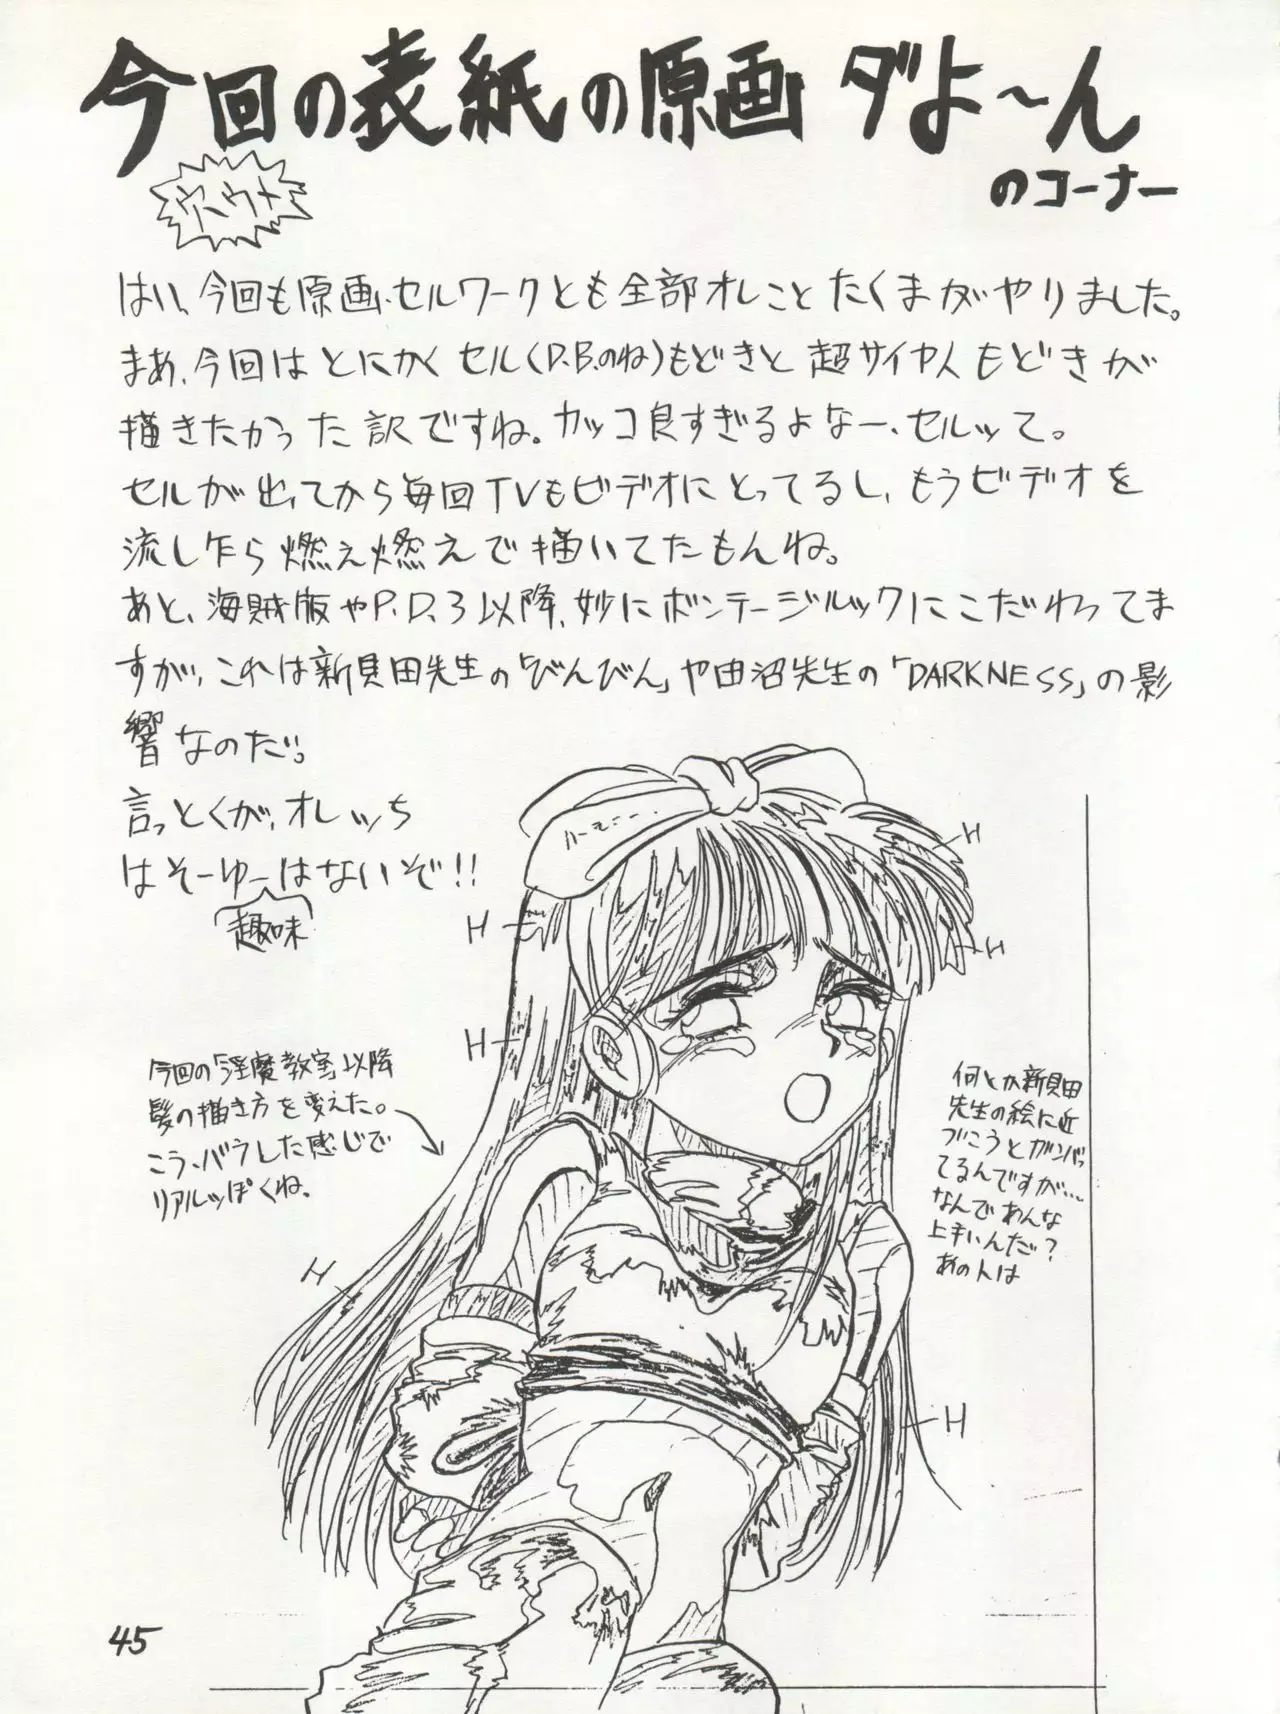 今回の表紙の原画ダよ〜ん
のコーナー
はい、今回も原画、セルワークとも全部オレことたくまがやりました。
まあ、今回はとにかくセル(D.B.のね)もどきと超サイヤ人もどきが
描きたかった訳ですね。カッコ良すぎるよなー、セルッて。
セルが出てから毎回TVもビデオにとってるし、もうビデオを
流し乍ら燃え燃えで描いてたもんね。
あと、海賊版やP.D.3以降、妙にボンテージルックにこだわってま
すが、これは新貝田先生の「びんびん」や由沼先生の「DARKNESS」の影
響なのだ。
言っとくが、オレッち
はそーゆーはないぞ!!
趣味
ハーモニー
H
H
H
H
今回の「淫魔教室」以降
髪の描き方を変えた。
こう、バラした感じで
リアルッぽくね。
何とか新貝田
先生の絵に近
づこうとガンバっ
てるんですが…
なんであんな
上手いんだ?
あの人は
H
H
45